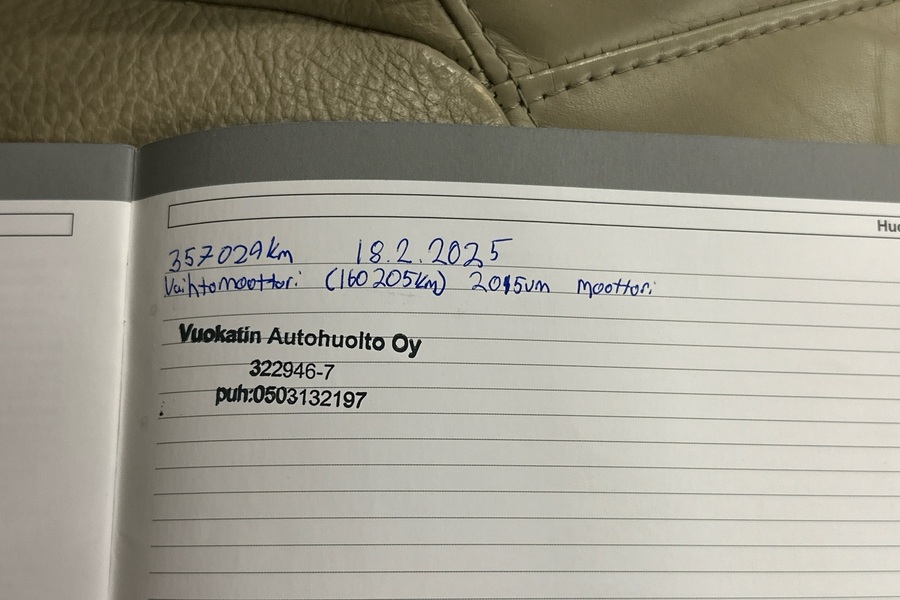 Huo
357029km 18.2.2025
Vaihtomoottori (160205km) 2015vm moottori
Vuokatin Autohuolto Oy
322946-7
puh:0503132197